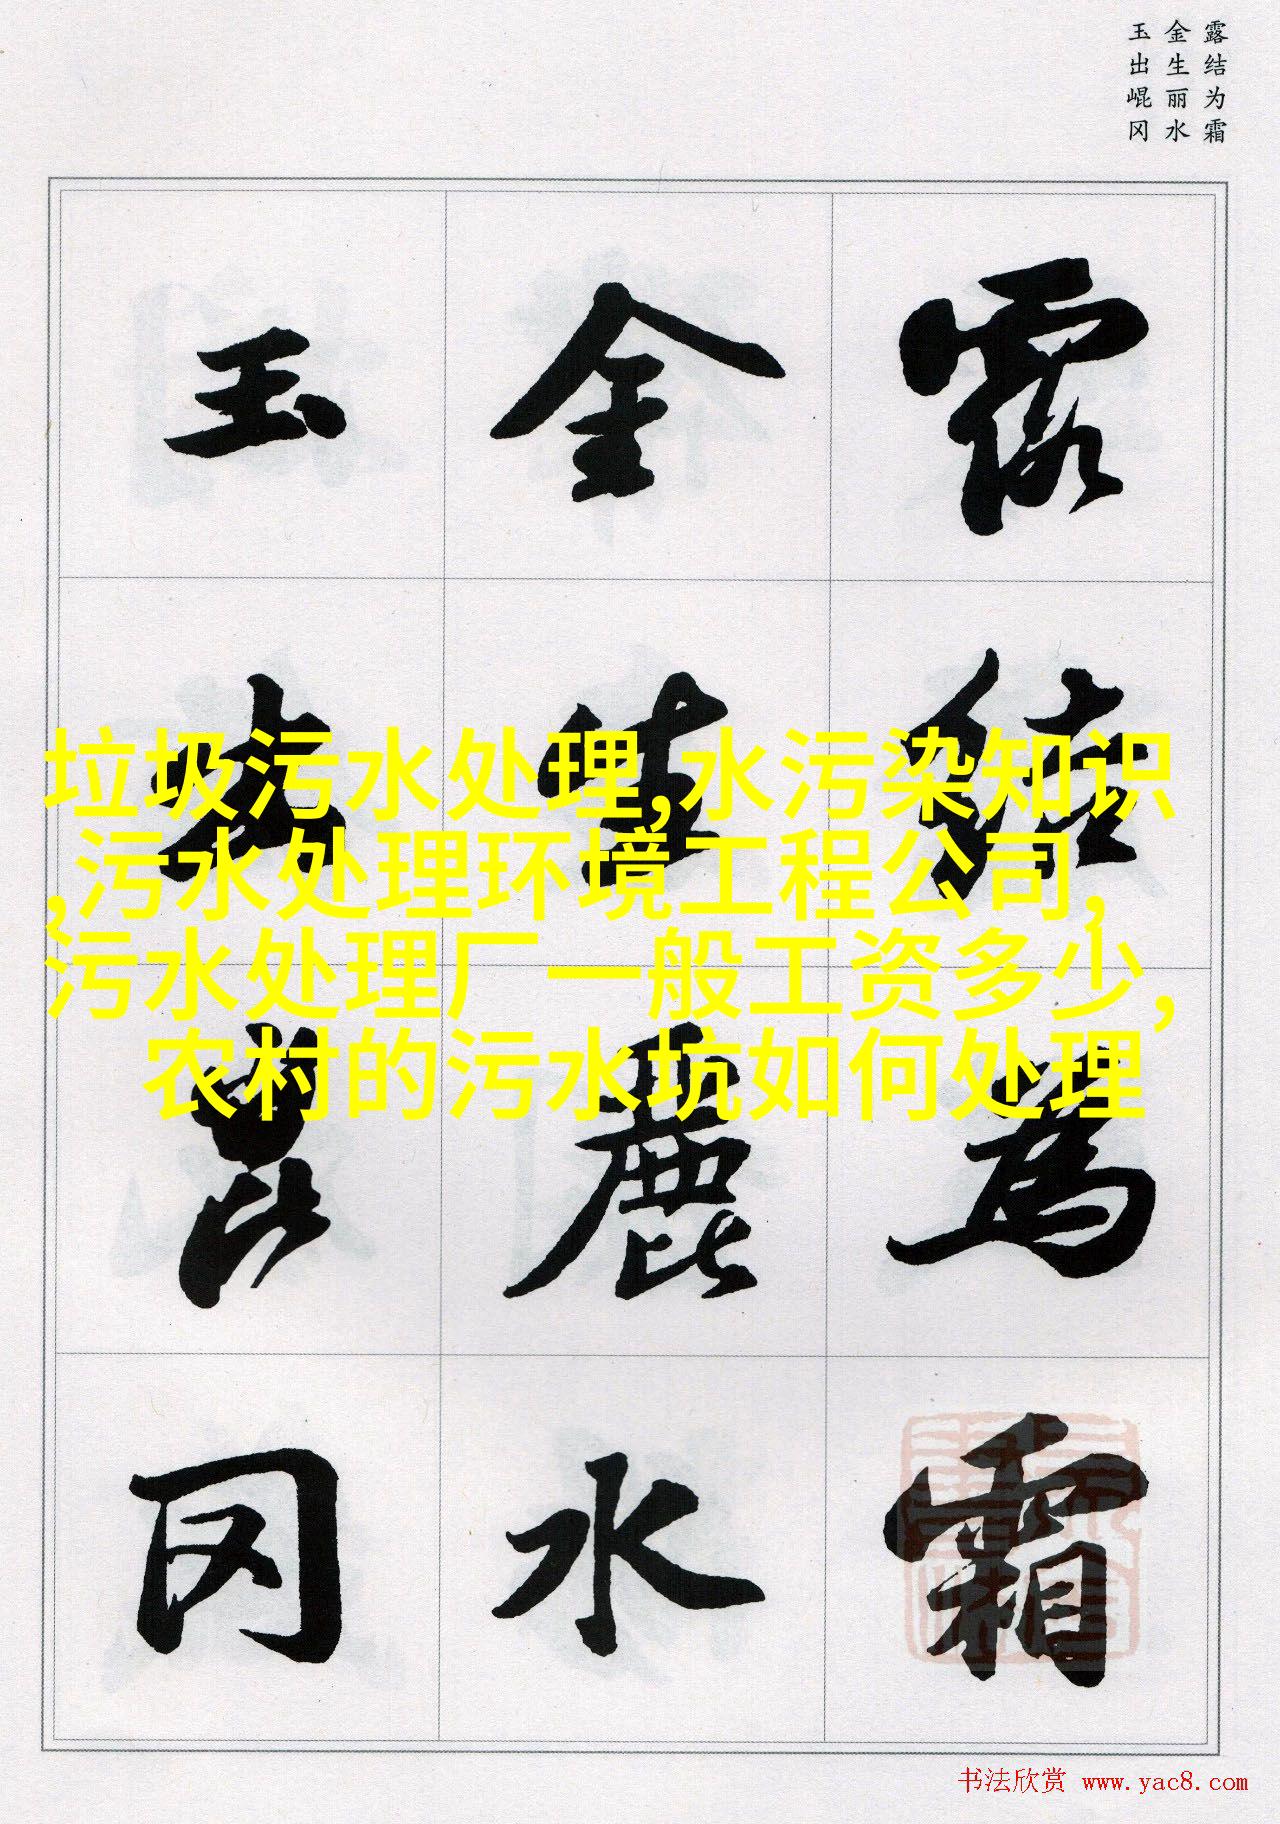 露结为霜
金生丽水
玉出崐冈
露结為霜
金生麗水
玉出崑冈
垃圾污水处理,水污染知识
,污水处理环境工程公司,
污水处理厂一般工资多少,
农村的污水坑如何处理
书法欣赏 www.yac8.com